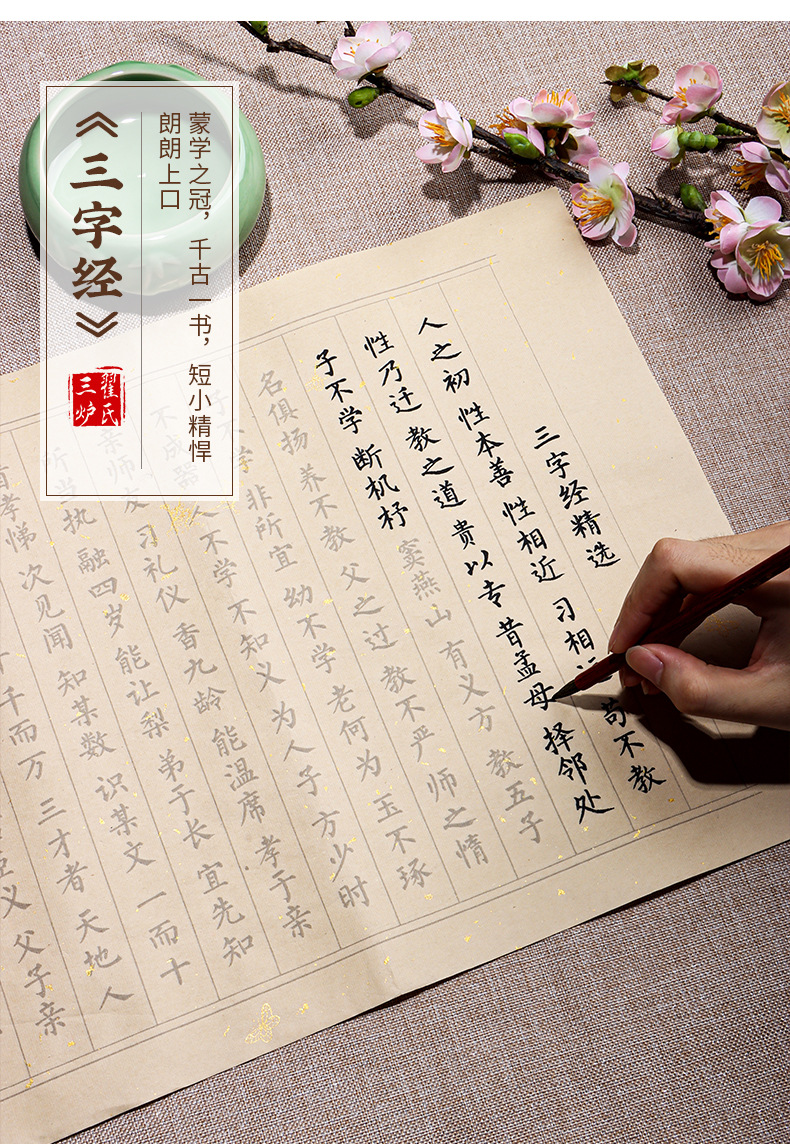 《三字经》
蒙学之冠，千古一书，短小精悍
朗朗上口
翟氏
三炉
三字经精选
人之初 性本善 性相近 习相 苟不教
性乃迁 教之道 贵以专 昔孟母 择邻处
子不学 断机杼 窦燕山 有义方 教五子
名俱扬 养不教 父之过 教不严 师之惰
子不学 非所宜 幼不学 老何为 玉不琢
不成器 人不学 不知义 为人子 方少时
亲师友 习礼仪 香九龄 能温席 孝于亲
所当执 融四岁 能让梨 弟于长 宜先知
首孝悌 次见闻 知某数 识某文 一而十
千而万 三才者 天地人
臣义 父子亲